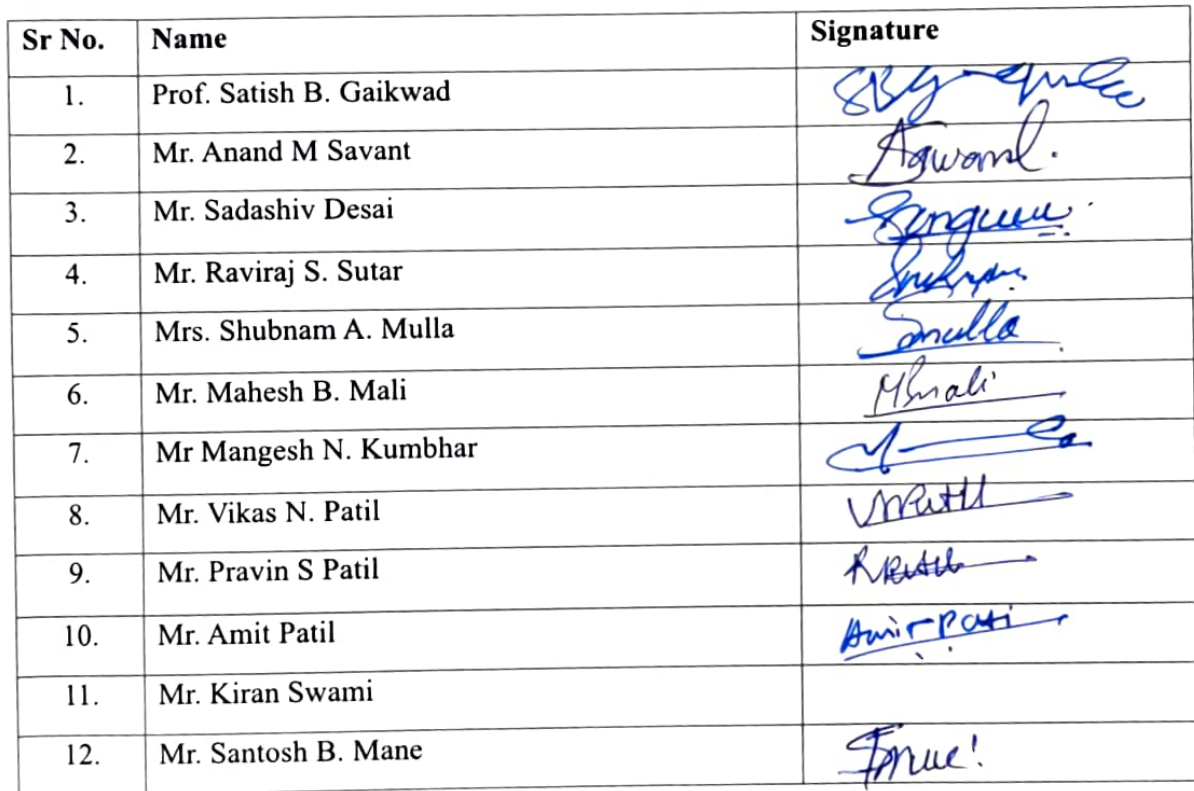 Sr No. Name Signature
1. Prof. Satish B. Gaikwad
2. Mr. Anand M Savant
3. Mr. Sadashiv Desai
4. Mr. Raviraj S. Sutar
5. Mrs. Shubnam A. Mulla Smulla
6. Mr. Mahesh B. Mali MBmali
7. Mr Mangesh N. Kumbhar
8. Mr. Vikas N. Patil VNPatil
9. Mr. Pravin S Patil
10. Mr. Amit Patil
11. Mr. Kiran Swami
12. Mr. Santosh B. Mane